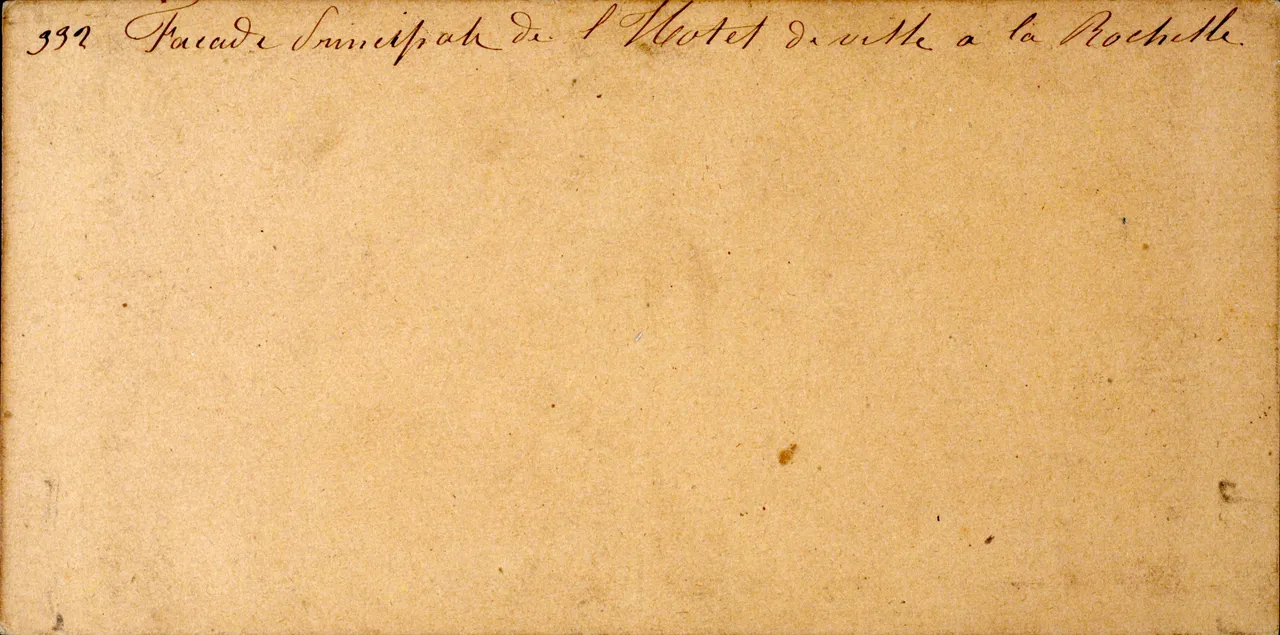 332 Facade Principale de l Hotel de ville a la Rochelle.